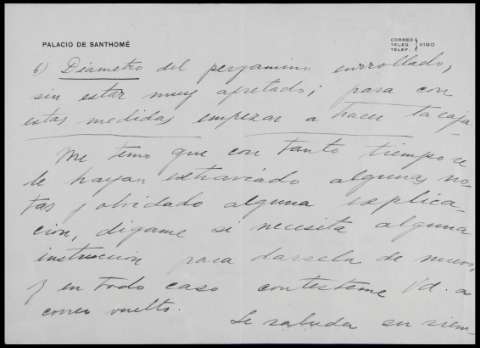 PALACIO DE SANTHOMÉ
CORREO
TELEG.
TELEF.
VIGO
6) Diámetro del pergamino enrrollado,
sin estar muy apretado; para con
estas medidas empezar a hacer la caja
Me temo que con tanto tiempo se
le hayan extraviado algunas no-
tas y olvidado alguna explica-
ción, dígame si necesita alguna
instrucción para darsela de nuevo,
y en todo caso contésteme Vd. a
correo vuelto.
Le saluda su siem-